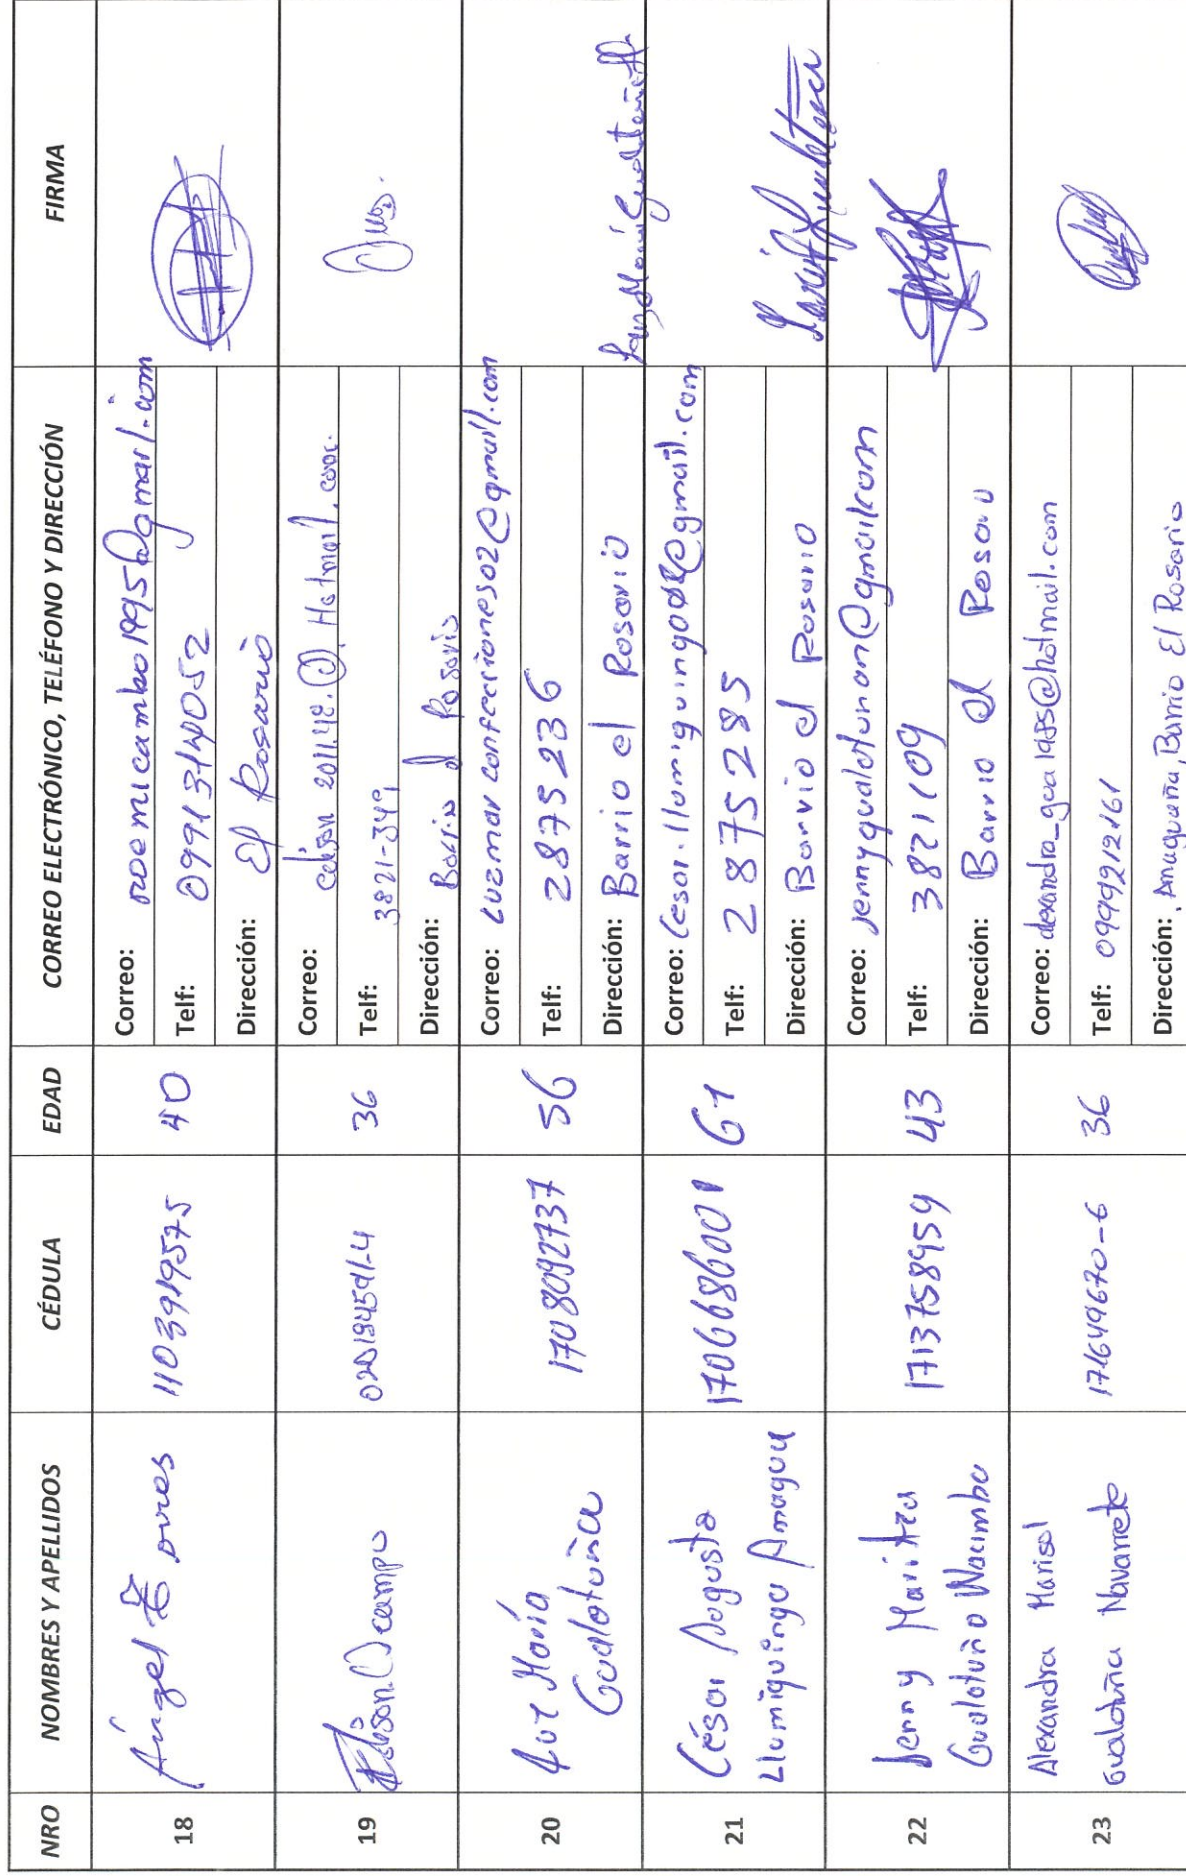 NRO NOMBRES Y APELLIDOS CÉDULA EDAD CORREO ELECTRÓNICO, TELÉFONO Y DIRECCIÓN FIRMA
18 Ángel 1103919575 40
Correo: noemicambo1995@gmail.com
Telf: 0991314052
Dirección: El Rosario
19 Edison Ocampo 36
Correo: edison 201142.@ Hotmail.com.
Telf: 3821-349
Dirección: Barrio el Rosario
20 Luz María
Gualotuña
1708092737 56
Correo: luzmar confecciones02@gmail.com
Telf: 2875236
Dirección: Barrio el Rosario
21 César Augusto
Llumiquinga Amagua
1706686001 61
Correo: Cesar.llumiquinga002@gmail.com
Telf: 2875285
Dirección: Barrio el Rosario
22 Jenny Maritza
Gualotuña Nacimba
1713758959 43
Correo: jennygualotunan@gmail.com
Telf: 3821109
Dirección: Barrio el Rosario
23 Alexandra Marisol
Gualotuña Navarrete
171649670-6 36
Correo: alexandra_gua1985@hotmail.com
Telf: 0999212161
Dirección: Amaguaña, Barrio El Rosario